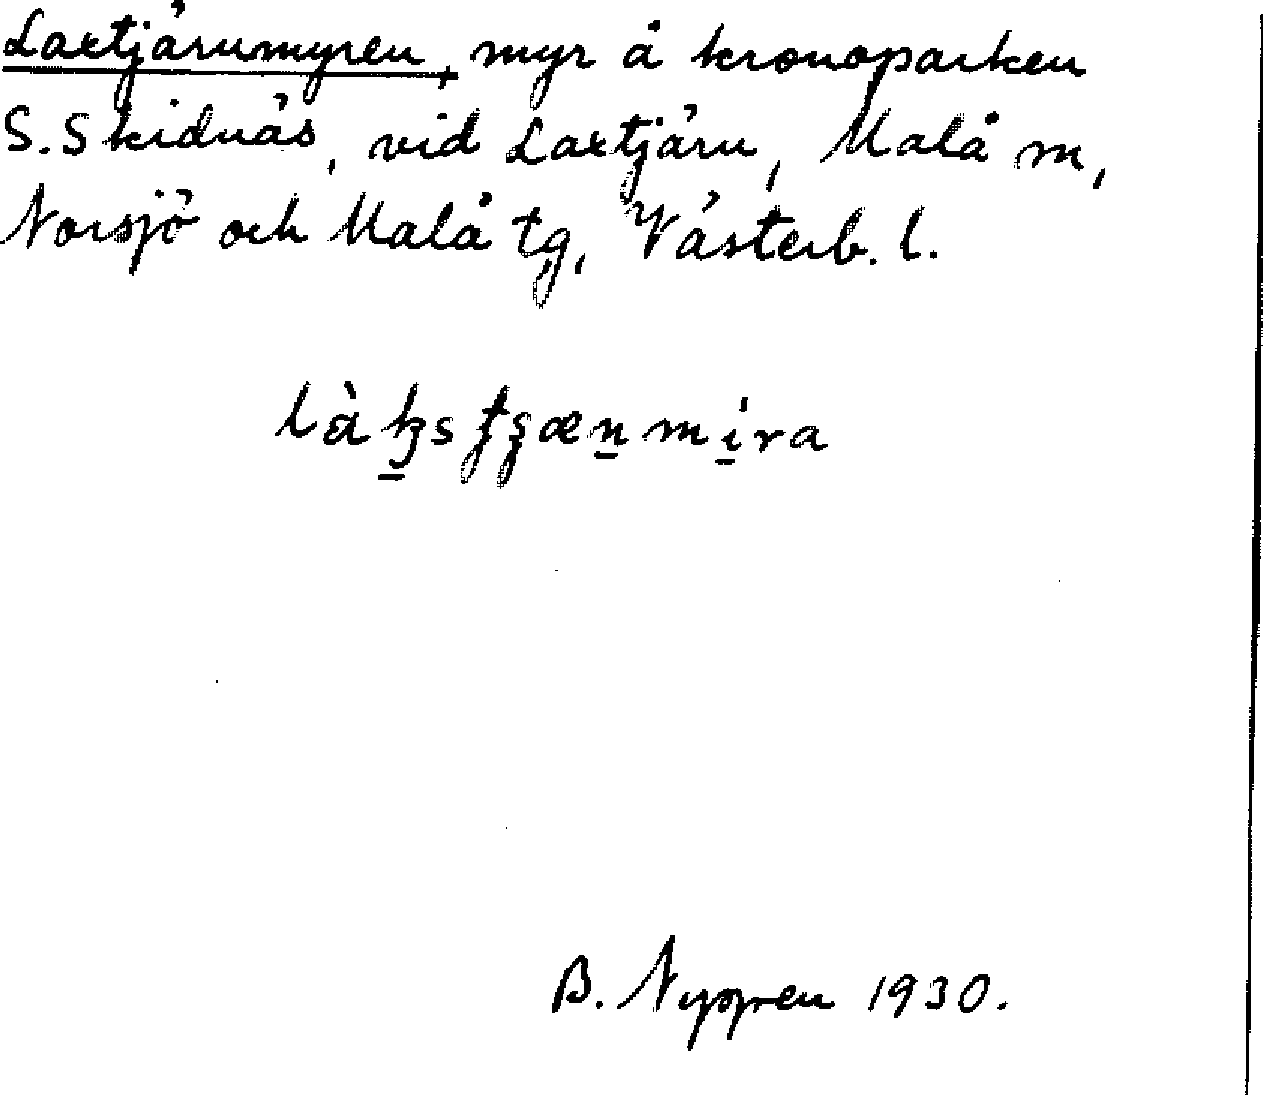 Laxtjärnmyren, myr å kronoparken
S. Skidnäs, vid Laxtjärn, Malå m,
Norsjö och Malå tg, Västerb. l.
B. Nyppen 1930.